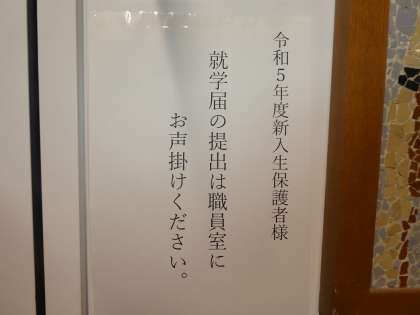 令和5年度新入生保護者様
就学届の提出は職員室に
お声掛けください。